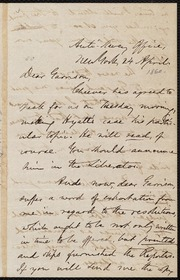 Anti Slavery Office,
New York, 24 April
1860.
Dear Garrison,
Cheever has agreed to
speak for us on Tuesday morning,
making Hyatt's case his particu-
lar topic. He will read, of
course. You should announce
him in the Liberator.
And now, dear Garrison,
suffer a word of exhortation from
me in regard to the resolutions
which ought to be not only written
in time to be offered, but printed
and slips furnished the reporters.
If you will send me the